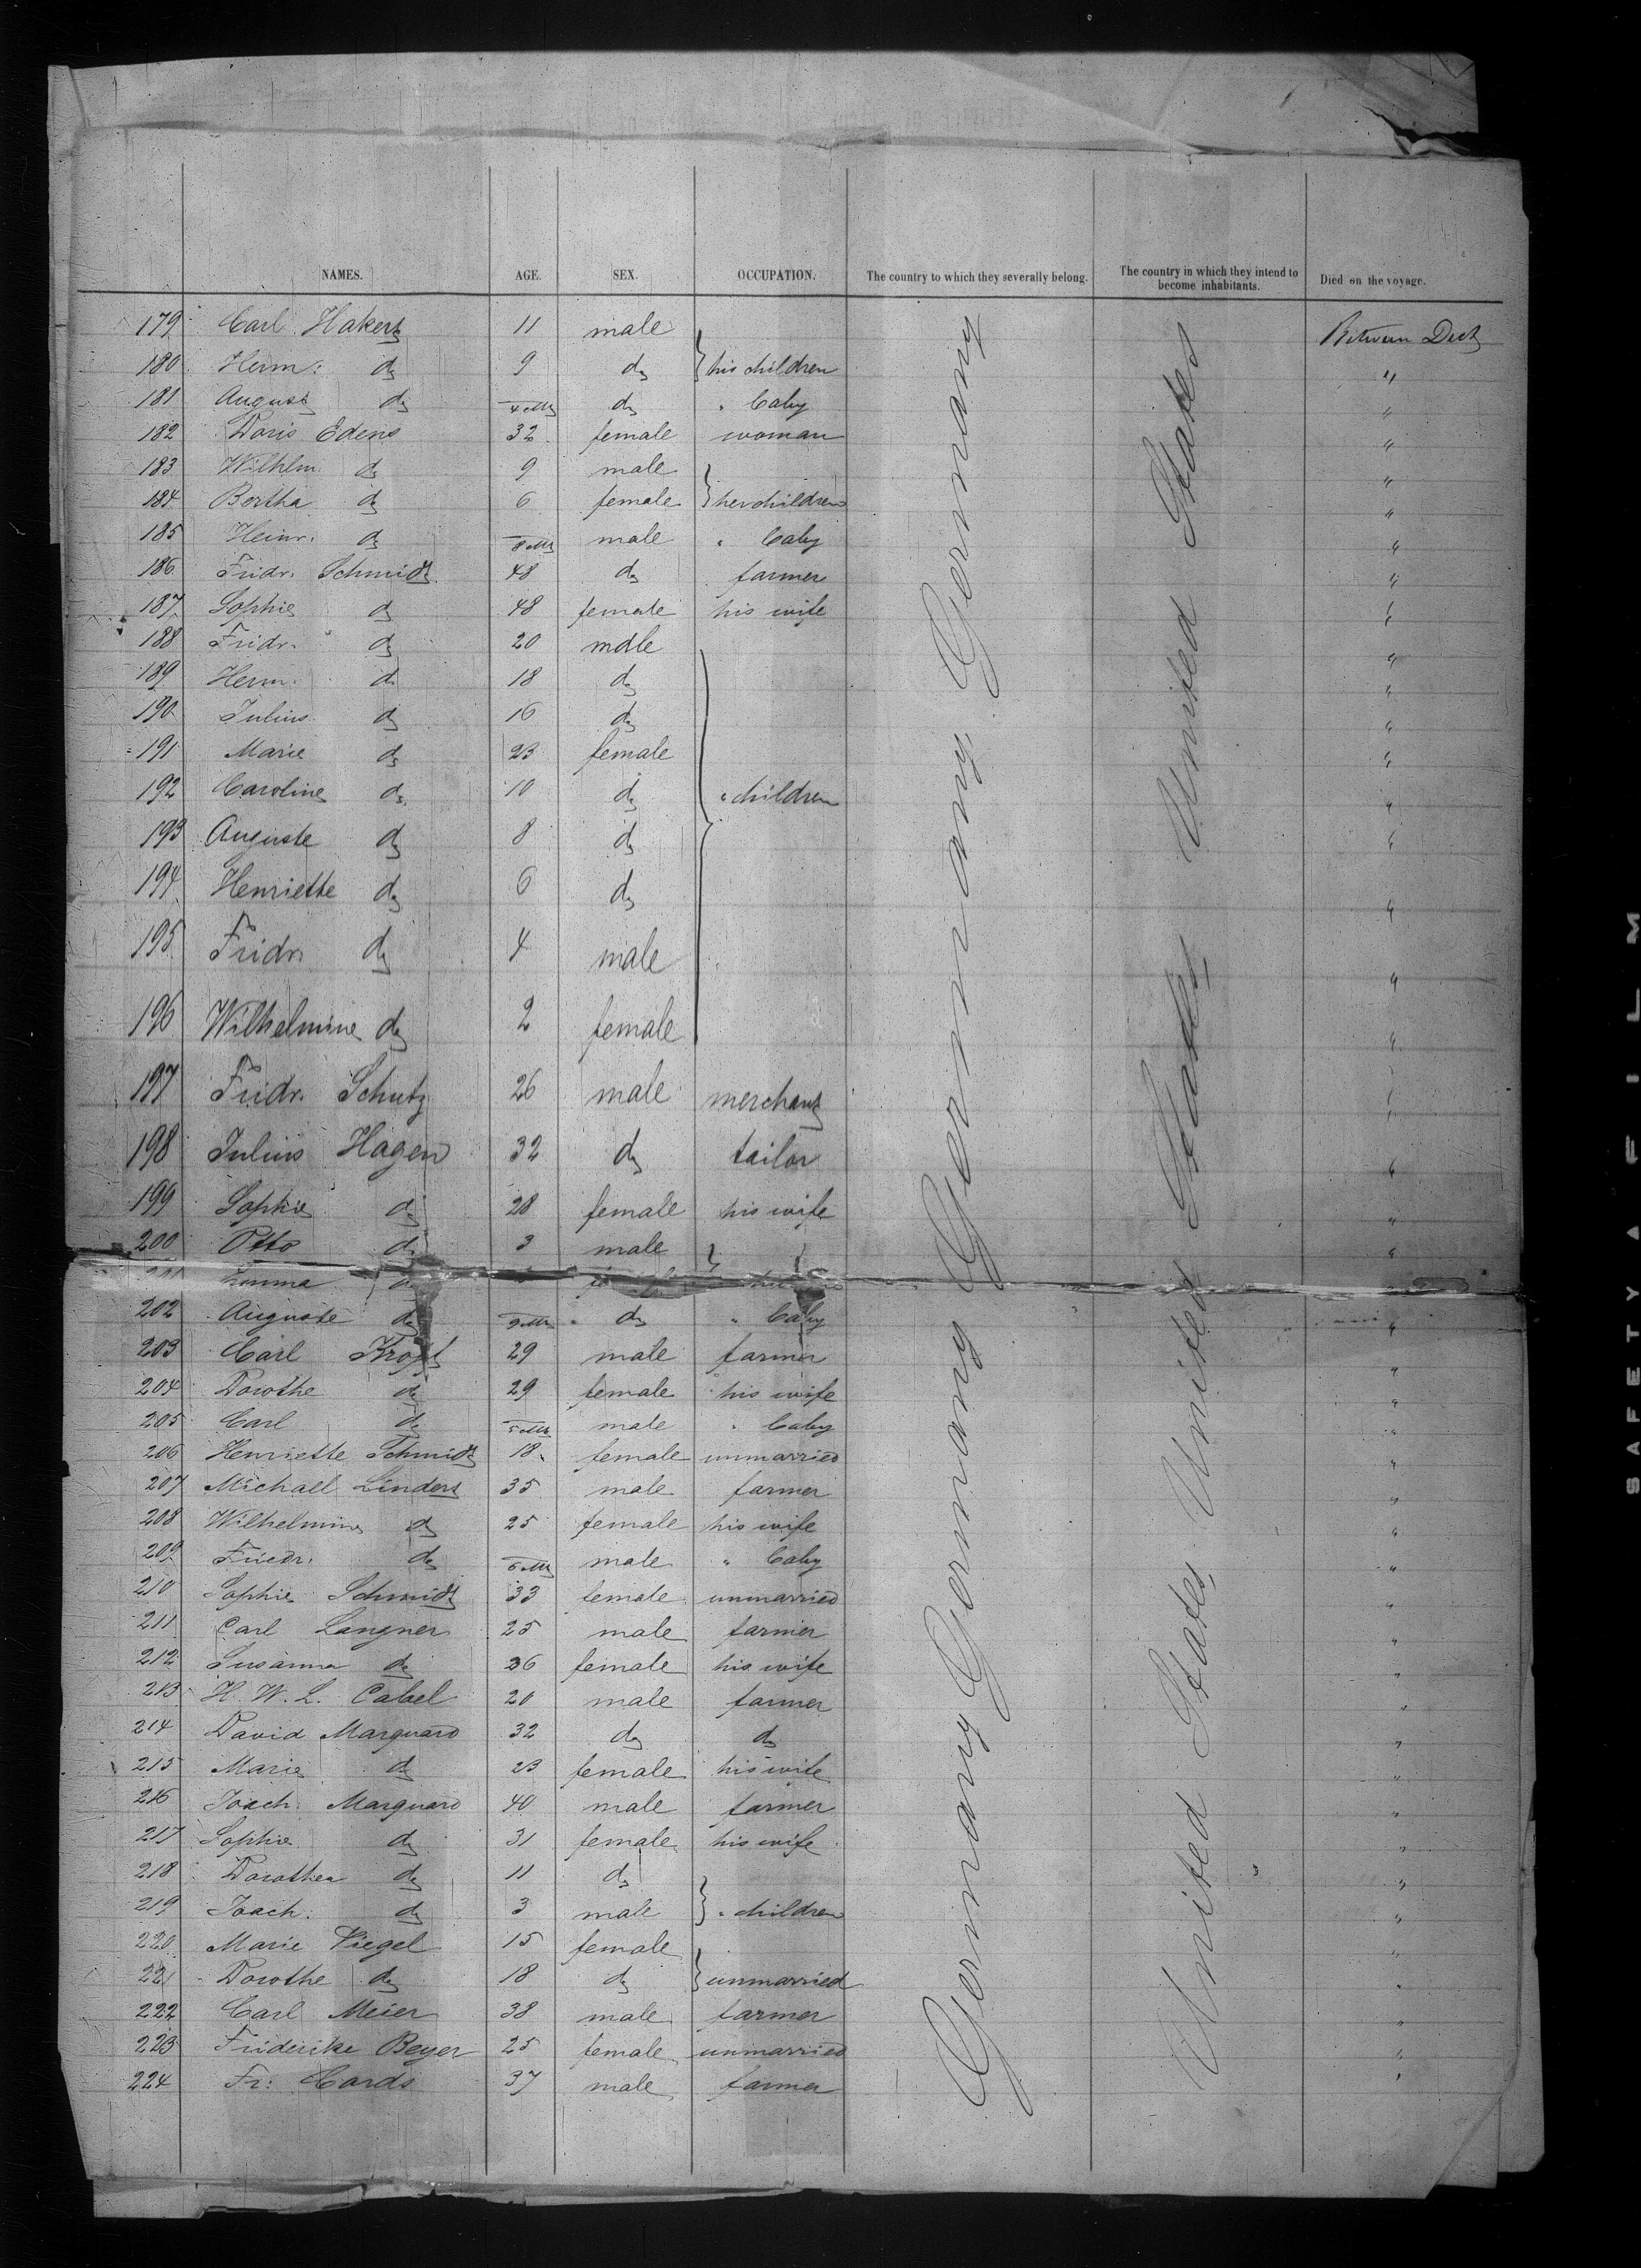 NAMES. AGE. SEX. OCCUPATION. The country to which they severally belong. The country in which they intend to become inhabitants. Died on the voyage.
179 Carl Hakert 11 male Between Deck
180 Herm: do 9 do his children "
181 August do 4 Mts do " baby "
182 Doris Edens 32 female woman "
183 Wilhlm do 9 male "
184 Bertha do 6 female her children "
185 Heinr. do 8 Mts male " baby "
186 Fridr. Schmidt 48 do farmer "
187 Sophie do 48 female his wife "
188 Fridr. do 20 male "
189 Herm. do 18 do "
190 Julius do 16 do "
191 Marie do 23 female "
192 Caroline do 10 do " children "
193 Auguste do 8 do "
194 Henriette do 6 do "
195 Fridr. do 4 male "
196 Wilhelmine do 2 female "
197 Fridr. Schutz 26 male merchant "
198 Julius Hagen 32 do tailor "
199 Sophie do 28 female his wife "
200 Otto do 3 male "
Emma do
202 Auguste do 9 Mts do " baby "
203 Carl Kropf 29 male farmer "
204 Dorothe do 29 female his wife "
205 Carl do 5 Mts male " baby "
206 Henriette Schmidt 18 female unmarried "
207 Michael Lindert 35 male farmer "
208 Wilhelmine do 25 female his wife "
209 Friedr. do 6 Mts male " baby "
210 Sophie Schmidt 33 female unmarried "
211 Carl Langner 25 male farmer "
212 Susanna do 36 female his wife "
213 H. W. L. Cabel 20 male farmer "
214 David Marquard 32 do do "
215 Marie do 23 female his wife "
216 Joach. Marquard 40 male farmer "
217 Sophie do 31 female his wife "
218 Dorothea do 11 do "
219 Joach. do 3 male " children "
220 Marie Viegel 15 female "
221 Dorothe do 18 do unmarried "
222 Carl Meier 38 male farmer "
223 Friderike Beyer 25 female unmarried "
224 Fr: Cards 37 male farmer "
Germany Germany Germany Germany
United States United States United States
SAFETY FILM